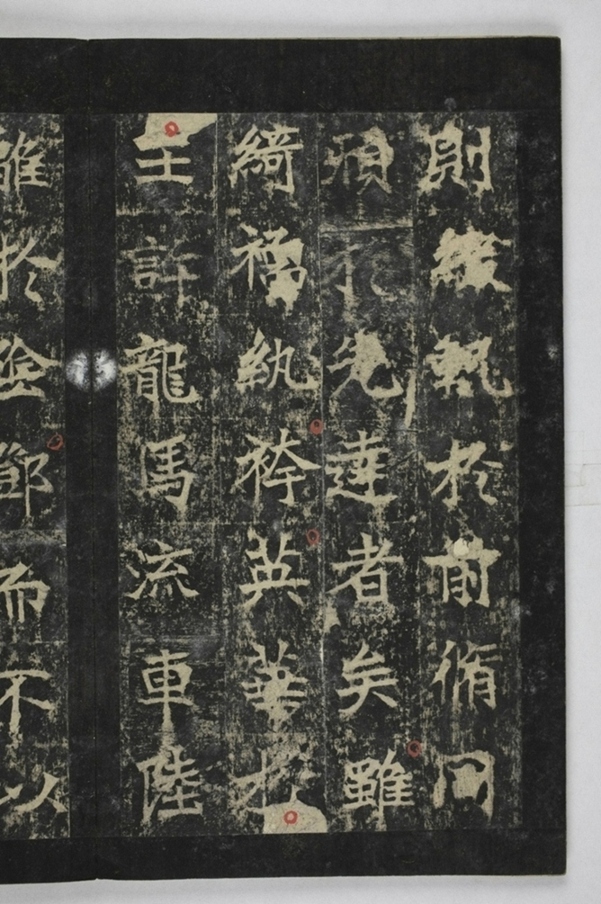 則綴軌於前脩同
於先達者矣雖
綺襦紈袴英華於
王許龍馬流車陸
離於陰鄧而不以